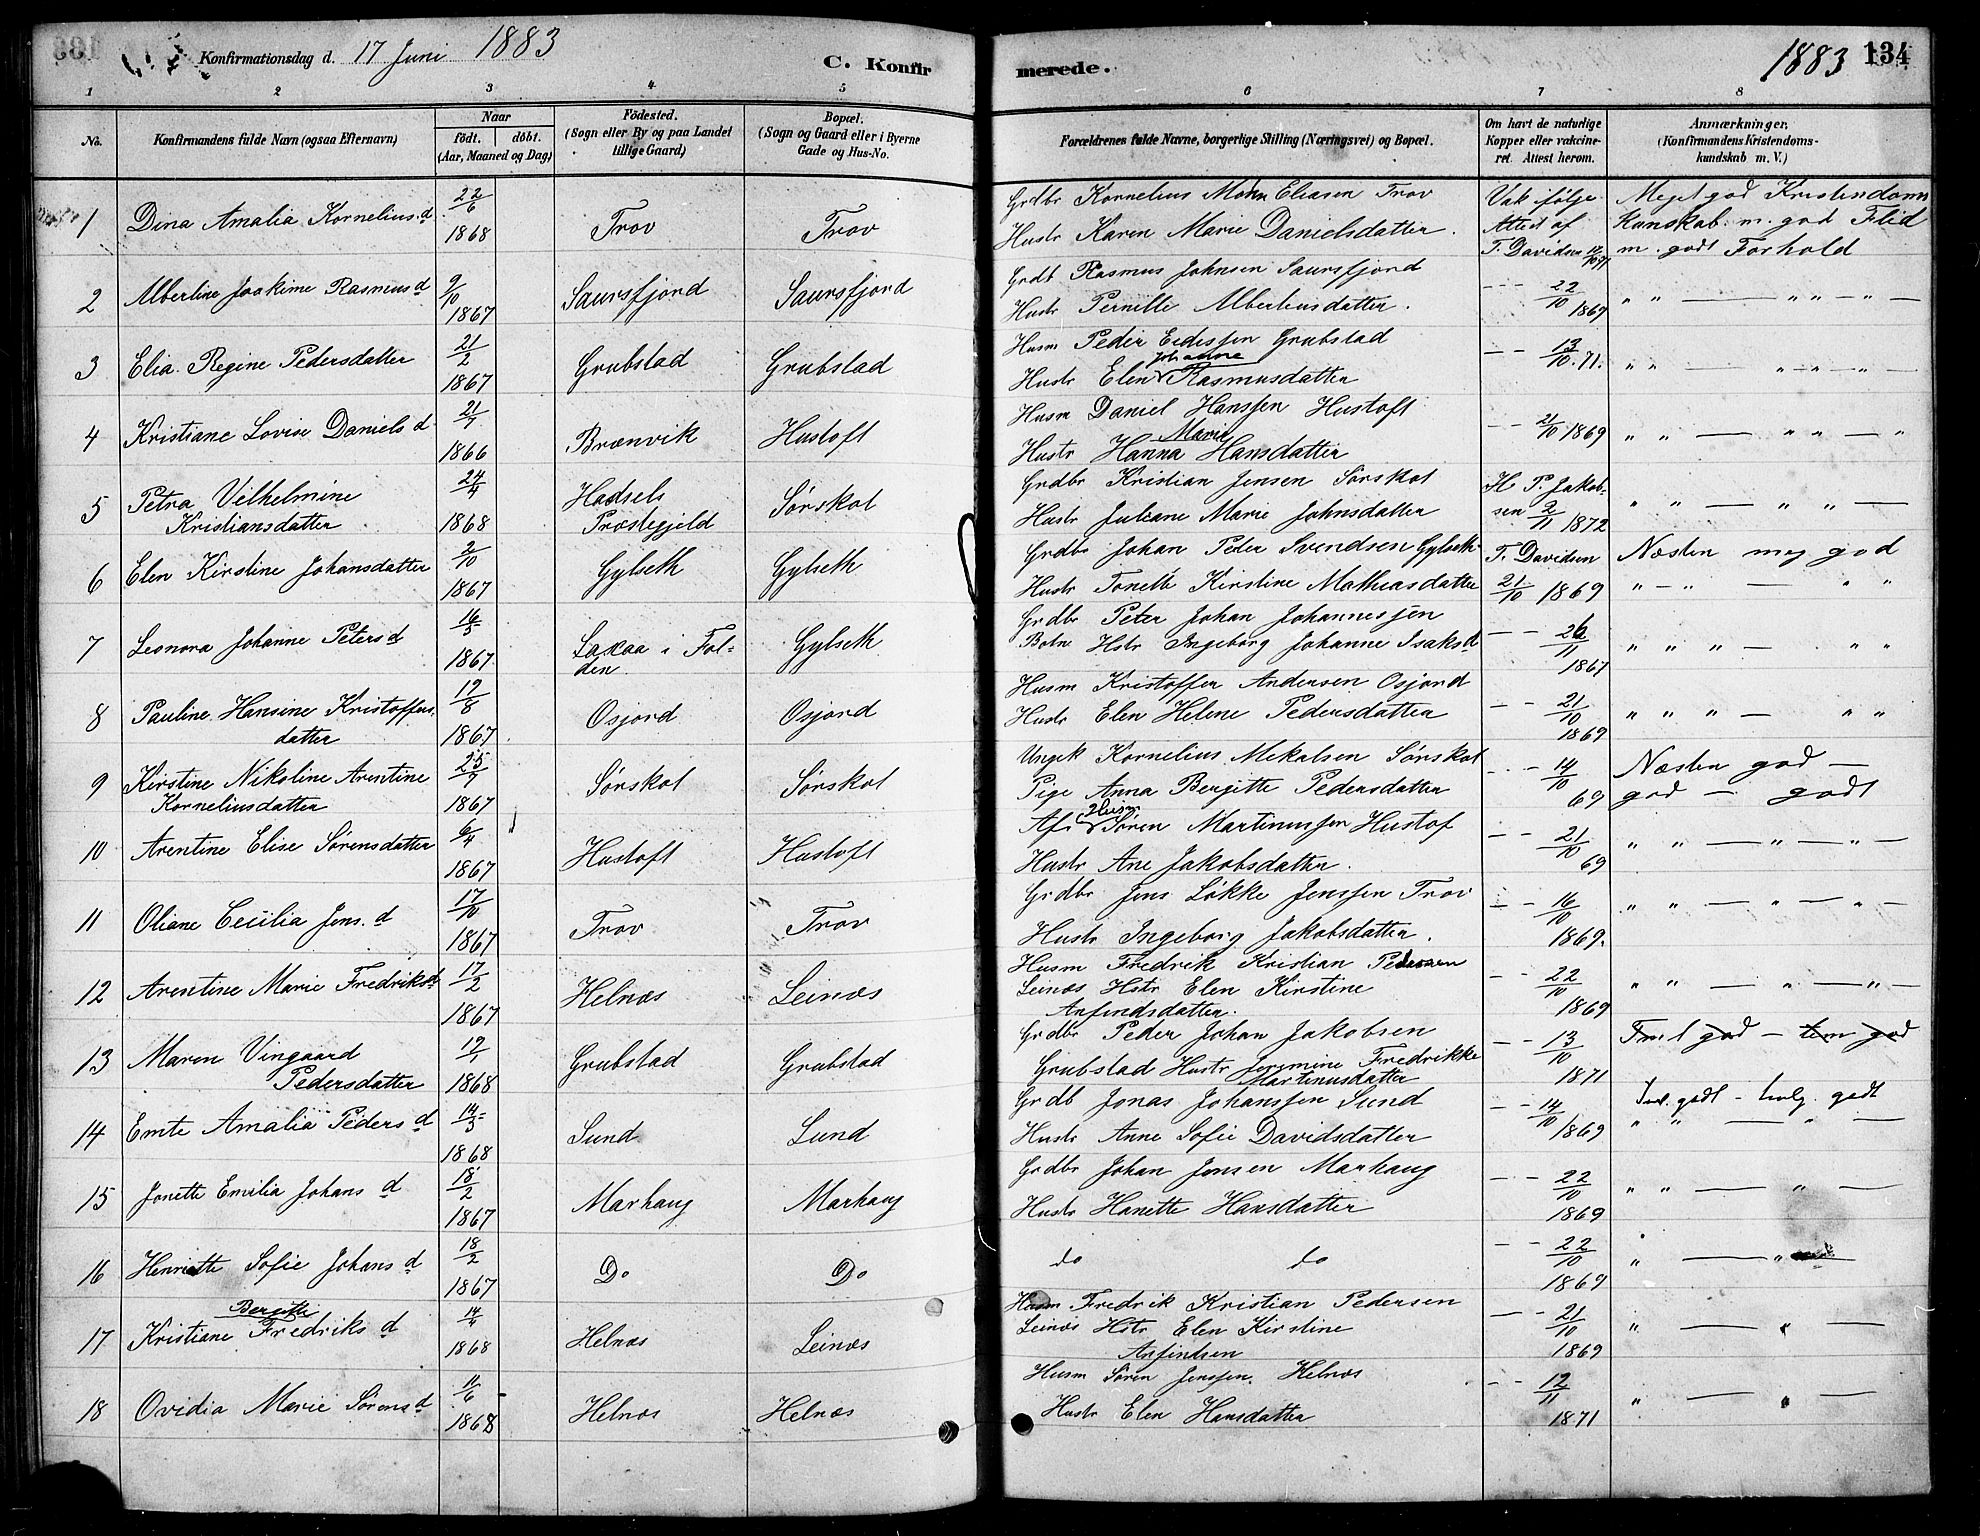 Konfirmationsdag d. 17 Juni 1883
C. Konfirmerede.
1883 134
1 2 3 4 5 6 7 8
No.
Konfirmandens fulde Navn (ogsaa Efternavn)
Naar
født. døbt.
(Aar, Maaned og Dag)
Fødested.
(Sogn eller By og paa Landet
tillige Gaard)
Bopæl.
(Sogn og Gaard eller i Byerne
Gade og Hus-No.
Forældrenes fulde Navne, borgerlige Stilling (Næringsvei) og Bopæl.
Om havt de naturlige
Kopper eller vakcine-
ret. Attest herom.
Anmærkninger,
(Konfirmandens Kristendoms-
kundskab m. V.)
1 Dina Amalia Kornelius.d 22/6 1868 Trov Trov
Grdbr Kornelius Eliasen Trov
Hustr Karen Marie Danielsdatter.
Vak ifølge
Attest af
T. Davidsen
Meget god Kristendoms
Kunskab. m. god Flid
m. godt Forhold
2 Alberline Joakime Rasmus d 9/10 1867 Saursfjord Saursfjord
Grdb Rasmus Johnsen Saursfjord
Hustr Pernille Albertusdatter.
- - 22/10 1869 " " — " " — " —
3 Elia. Regine Pedersdatter 21/2 1867 Grubstad Grubstad
Husm Peder Edissen Grubstad
Hustr Elen Johanne Rasmusdatter
- - 13/10.71. " " — " — " —
4 Kristiane Lovise Daniels d 21/7 1866 Brænvik Hustoft
Husm Daniel Hanssen Hustoft
Hustr Hanna Marie Hansdatter
- - 21/10 1869 " " — " " — "
5 Petra Vilhelmine
Kristiansdatter 24/4 1868 Hadsels
Præstegjeld Sørskot
Grdbr Kristian Jensen Sørskot
Hustr Juliane Marie Johnsdatter
H. P. Jakob-
sen 2/11 1872 " " — " " —
6 Elen Kirstine Johansdatter 2/10 1867 Gylseth Gylseth
Grdbr Johan Peder Svendsen Gylseth
Hustr Tonette Kirstine Mathiasdatter
T. Davidsen
21/10 1869
Næsten meg god
" - " — " "
7 Leonora Johanne Peters d 16/5 1867 Laxaa i Fol-
den. Gylseth
Grdbr Peter Johan Johannesjen
Botn Hstr Ingeborg Johanne Isaks d
- - 26/11 1867 " " " — " "
8 Pauline. Hansine Kristoffers.
datter 19/8 1867 Osjord Osjord
Husm Kristoffer Andersen Osjord
Hustr Elen Helene Pedersdatter
- - 21/10 1869 " " " — " "
9 Kirstine Nikoline Arentine
Korneliusdatter 25/7 1867 Sørskot Sørskot
Ungk Kornelius Mekalsen Sørskot
Pige Anna Bergitte Pedersdatter
- - 14/10 69
Næsten god —
god — godt
10 Arentine Elise Sørensdatter 6/4 1867 Hustoft Hustoft
Af Husm Søren Martinussen Hustof
Hustr Ane Jakobsdatter.
- - 21/10 69 " " — " — " —
11 Oliane Cecilia Jens. d 17/10 1867 Trov Trov
Grdbr Jens Løkke Jenssen Trov
Hustr Ingeborg Jakobsdatter.
- - 16/10 1869. " " — " — " —
12 Arentine Marie Fredriks d 17/2 1867 Helnæs Leinæs
Husm Fredrik Kristian Pedersen
Leinæs Hstr Elen Kirstine
Anfindsdatter.
- - 22/10 1869 " " — " — " —
13 Maren Vingaard
Pedersdatter 19/1 1868 Grubstad Grubstad
Grdbr Peder Johan Jakobsen
Grubstad Hustr Jermine Fredrikke
Martinusdatter
- - 13/10 1871 god — god
14 Emte Amalia Peders d 14/5 1868 Sund Lund
Grdb Jonas Johanssen Sund
Hustr Anne Sofie Davidsdatter
- - 14/10 1869 godt - godt
" " — " —
15 Jonette Emilia Johans d 18/2 1867 Marhaug Marhaug
Grdbr Johan Jensen Marhaug
Hustr Hanette Hansdatter
- - 22/10 1869 " " — " —
16 Henriette Sofie Johans d 18/2 1867 Do Do
do do
- - 22/10 1869 " — " —
17 Kristiane Bergitte Fredriks d 14/4 1868 Helnæs Leinæs
Husm Fredrik Kristian Pedersen
Leinæs Hstr Elen Kirstine
Anfindsen
- - 21/10 1869 " — " —
18 Ovidia Marie Sørens d 11/6 1868 Helnæs Helnæs
Husm Søren Jenssen. Helnæs
Hustr Elen Hansdatter
- - 12/11 1871 " — " —